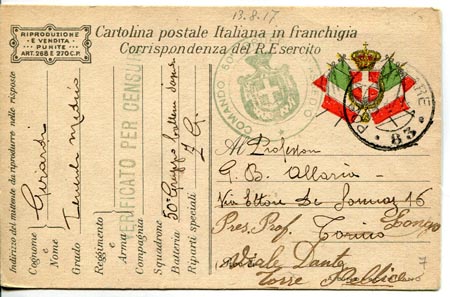 13.8.17
RIPRODUZIONE
E VENDITA
PUNITE
ART. 268 E 270 C.P.
Cartolina postale Italiana in franchigia
Corrispondenza del R. Esercito
COMANDO
83
VERIFICATO PER CENSURA
Indirizzo del mittente da riprodurre nelle risposte
Cognome
e
Nome
Grado Tenente Medico
Reggimento
Arma
Compagnia
Squadrone
Batteria 50° Gruppo
Riparti speciali Z. G.
Al Professor
G. B. Allaria
Via Ettore De Sonnaz 16
Pres. Prof. Longo
Torino
Viale Dante
Torre Pellice